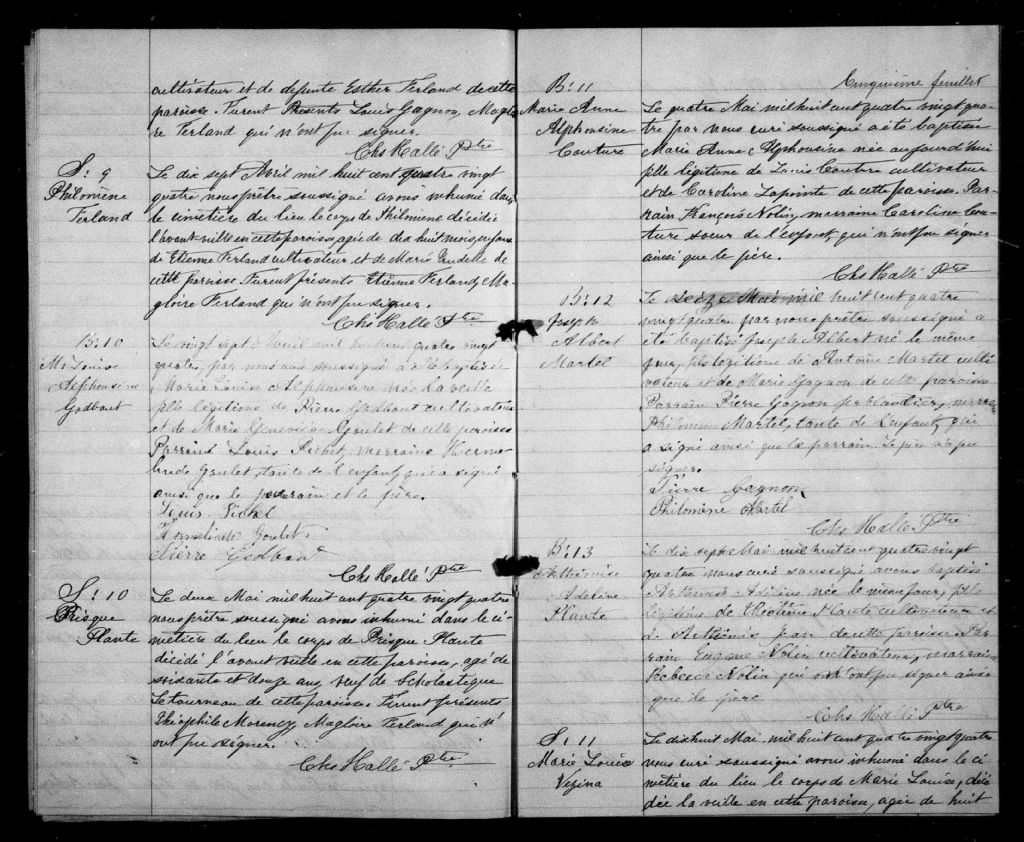 cultivateur et de defunte Esther Ferland de cette
paroisse. Furent Présents Louis Gagnon, Magloi
re Ferland qui n'ont pu signer.
Chs Hallé Ptre
S: 9
Philomène
Ferland
Le dix sept Avril mil huit cent quatre vingt
quatre nous prêtre soussigné avons inhumé dans
le cimetière du lieu le corps de Philomène décédée
l'avant-veille en cette paroisse, agée de dix huit mois, enfant
de Etienne Ferland cultivateur et de Marie
cette paroisse. Furent présents Etienne Ferland, Ma-
gloire Ferland qui n'ont pu signer.
Chs Hallé Ptre
B: 10
M. Louise
Alphonsine
Godbout
Le vingt sept Avril mil huit cent quatre vingt
quatre, par nous curé soussigné a été baptisée
Marie Louise Alphonsine née la veille
fille légitime de Pierre Godbout cultivateur
et de Marie Geneviève Goulet de cette paroisse
Parrain Louis Pichet, marraine Herme-
linde Goulet, tante de l'enfant, qui a signé
ainsi que le parrain et le père.
Louis Pichet
Hermelinde Goulet
Pierre Godbout
Chs Hallé Ptre
S: 10
Prisque
Plante
Le deux Mai mil huit cent quatre vingt quatre
nous prêtre soussigné avons inhumé dans le ci-
metière du lieu le corps de Prisque Plante
décédé l'avant veille en cette paroisse, agé de
soixante et douze ans, veuf de Scholastique
Letourneau de cette paroisse. Furent présents
Théophile Morency Magloire Ferland qui n'
ont pu signer.
Chs Hallé Ptre
Cinquième feuillet
B: 11
Marie Anne
Alphonsine
Couture
Le quatre Mai mil huit cent quatre vingt qua-
tre par nous curé soussigné a été baptisée
Marie Anne Alphonsine née aujourd'hui
fille légitime de Louis Couture cultivateur
et de Caroline Lapointe de cette paroisse. Par-
rain François Nolin, marraine Caroline Cou-
ture soeur de l'enfant, qui n'ont pu signer
ainsi que le père.
Chs Hallé Ptre
B: 12
Joseph
Albert
Martel
Le seize Mai mil huit cent quatre
vingt quatre par nous prêtre soussigné a
été baptisé Joseph Albert né le même
jour, fils légitime de Antoine Martel culti-
vateur et de Marie Gagnon de cette paroisse
Parrain Pierre Gagnon ferblantier, marraine
Philomène Martel, tante de l'enfant, qui
a signé ainsi que le parrain. Le père n'a pu
signer.
Pierre Gagnon
Philomène Martel
Chs Hallé Ptre
B: 13
Arthémise
Adeline
Plante
Le dix sept Mai mil huit cent quatre vingt
quatre nous curé soussigné avons baptisé
Adeline née le même jour, fille
légitime de Plante cultivateur et
de Jean de cette paroisse. Par-
rain Eugène Nolin cultivateur, marraine
Rebecca Nolin qui n'ont pu signer ainsi
que le père
Chs Hallé Ptre
S: 11
Marie Louise
Vezina
Le dixhuit Mai mil huit cent quatre vingt quatre
nous curé soussigné avons inhumé dans le ci-
metière du lieu le corps de Marie Louise, décé-
dée la veille en cette paroisse, agée de huit